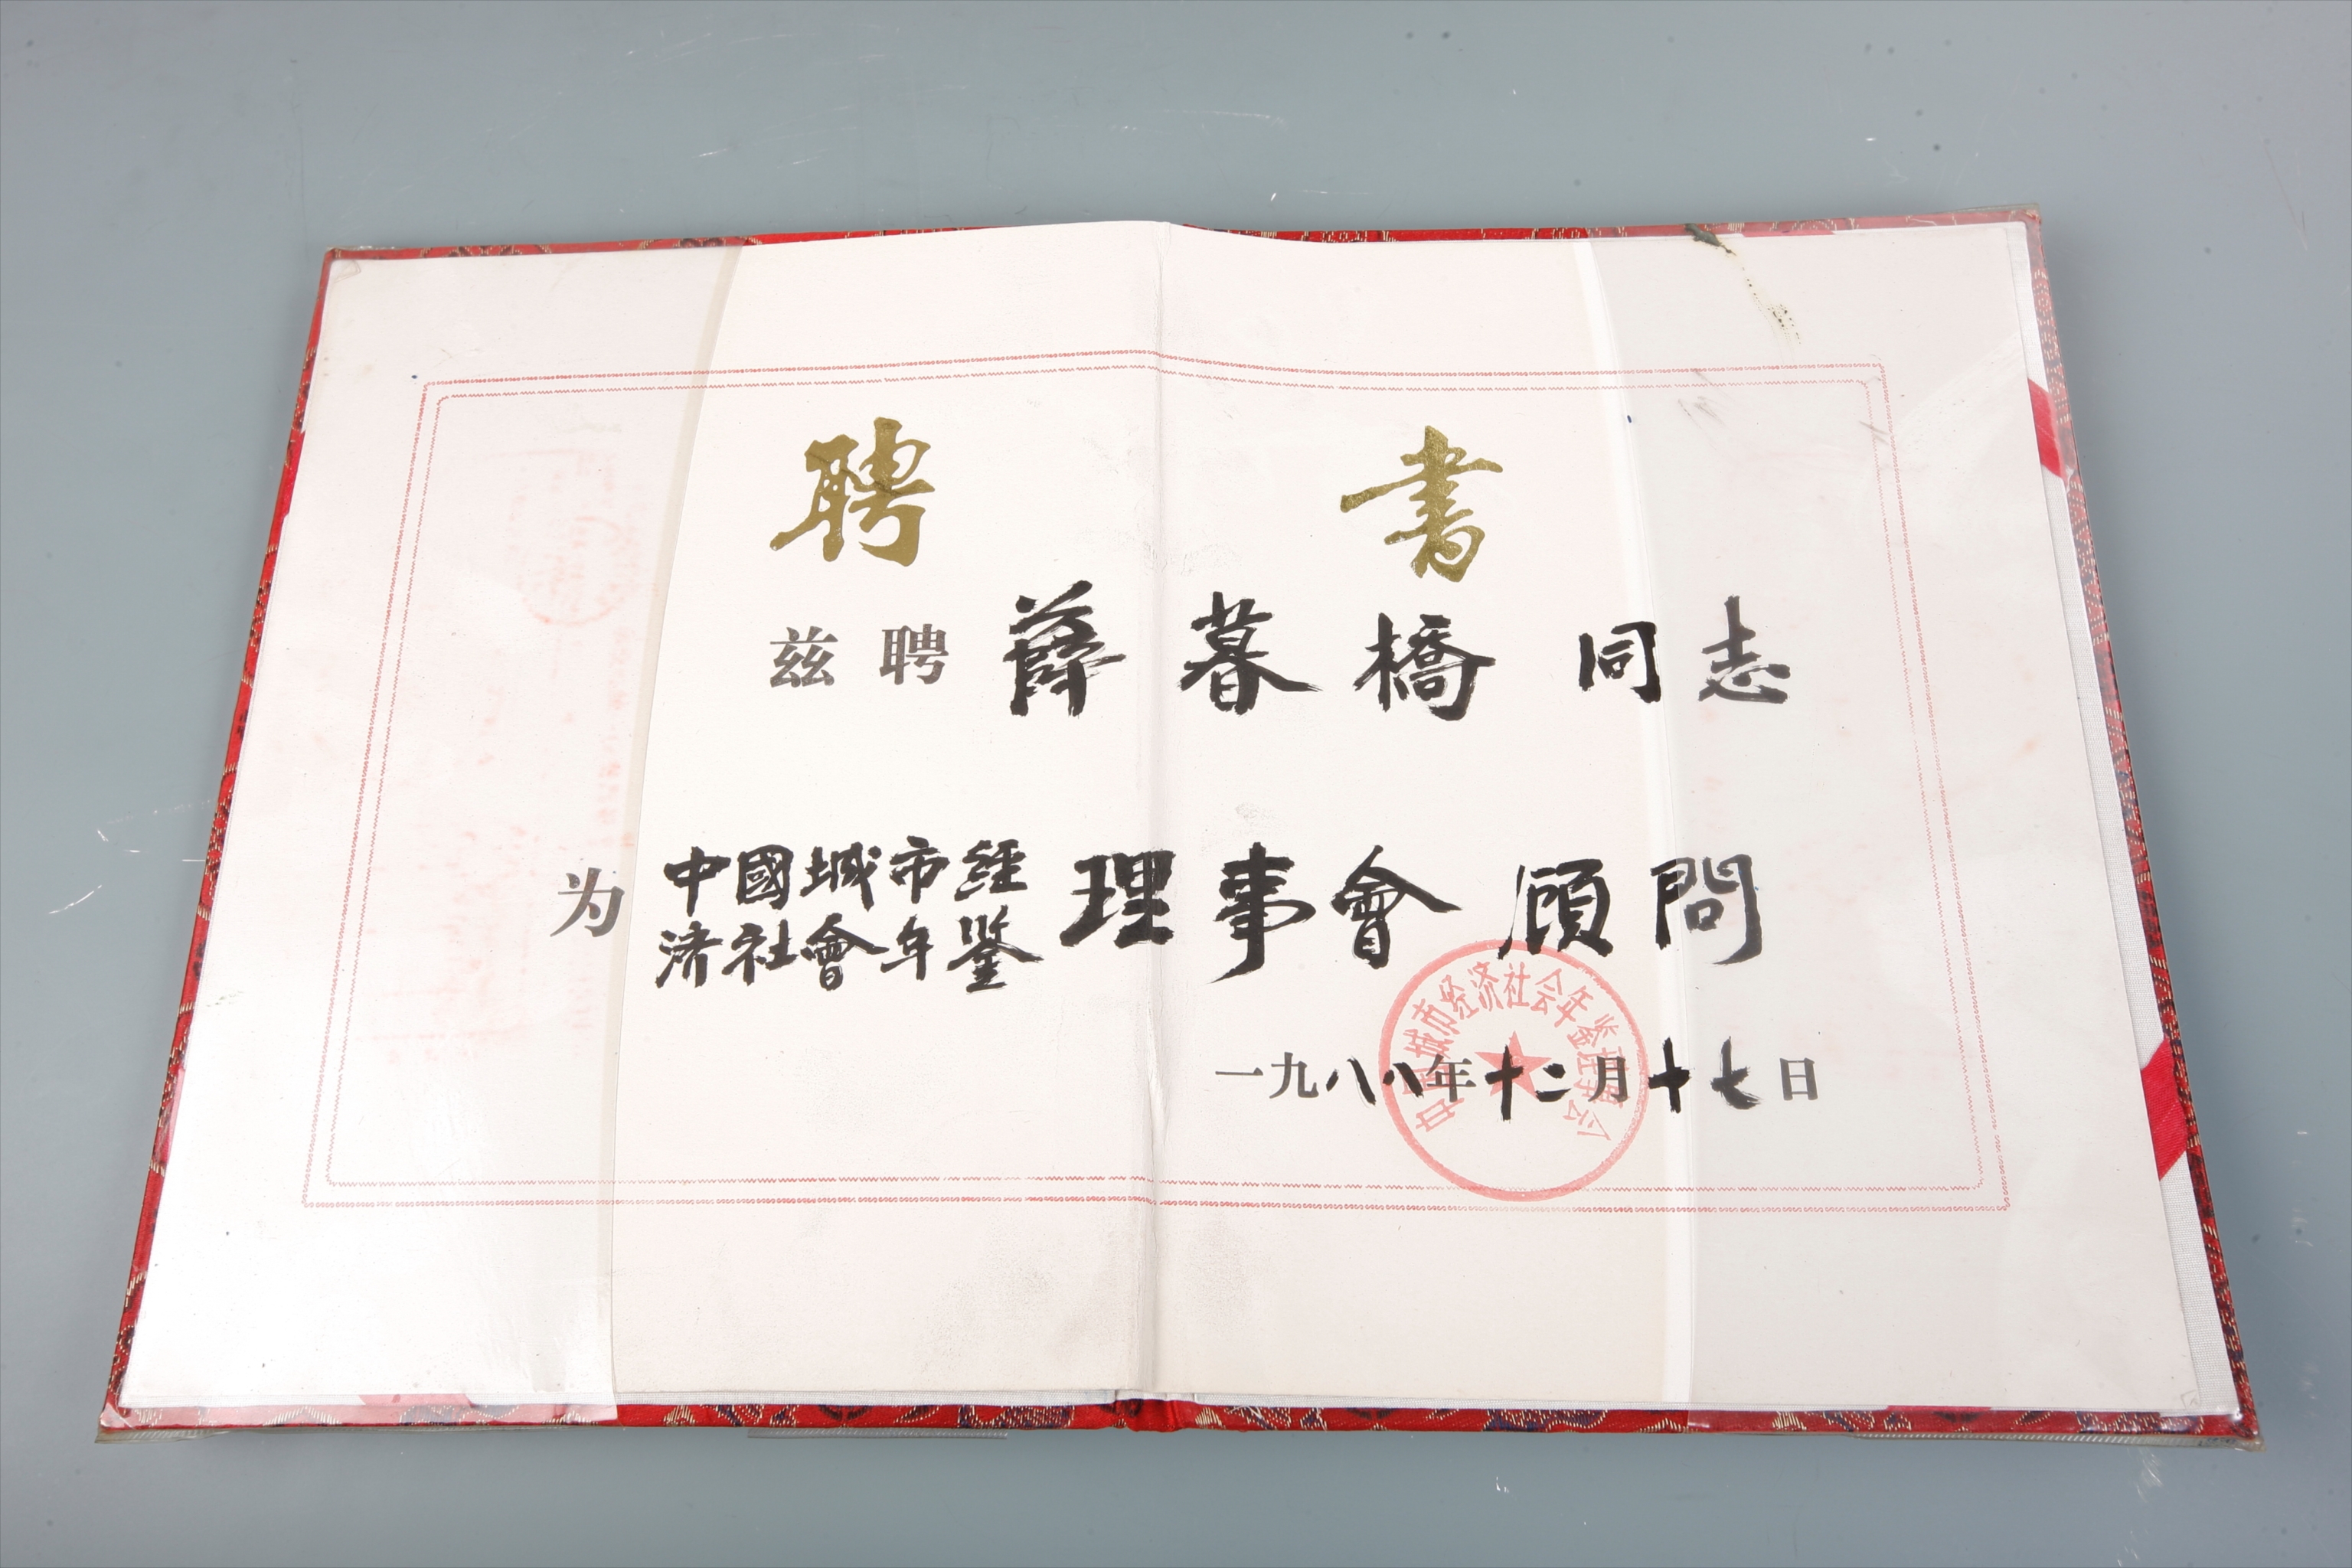 聘書
兹聘薛暮橋同志
为中國城市經
济社會年鉴理事會顧問
中国城市经济社会年鉴理事会
一九八八年十二月十七日